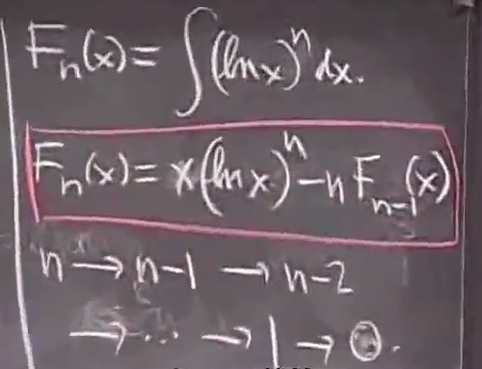 Fₙ(x) = ∫(ln x)ⁿ dx.
Fₙ(x) = x(ln x)ⁿ - n Fₙ₋₁(x)
n → n-1 → n-2
→ ... → 1 → 0.